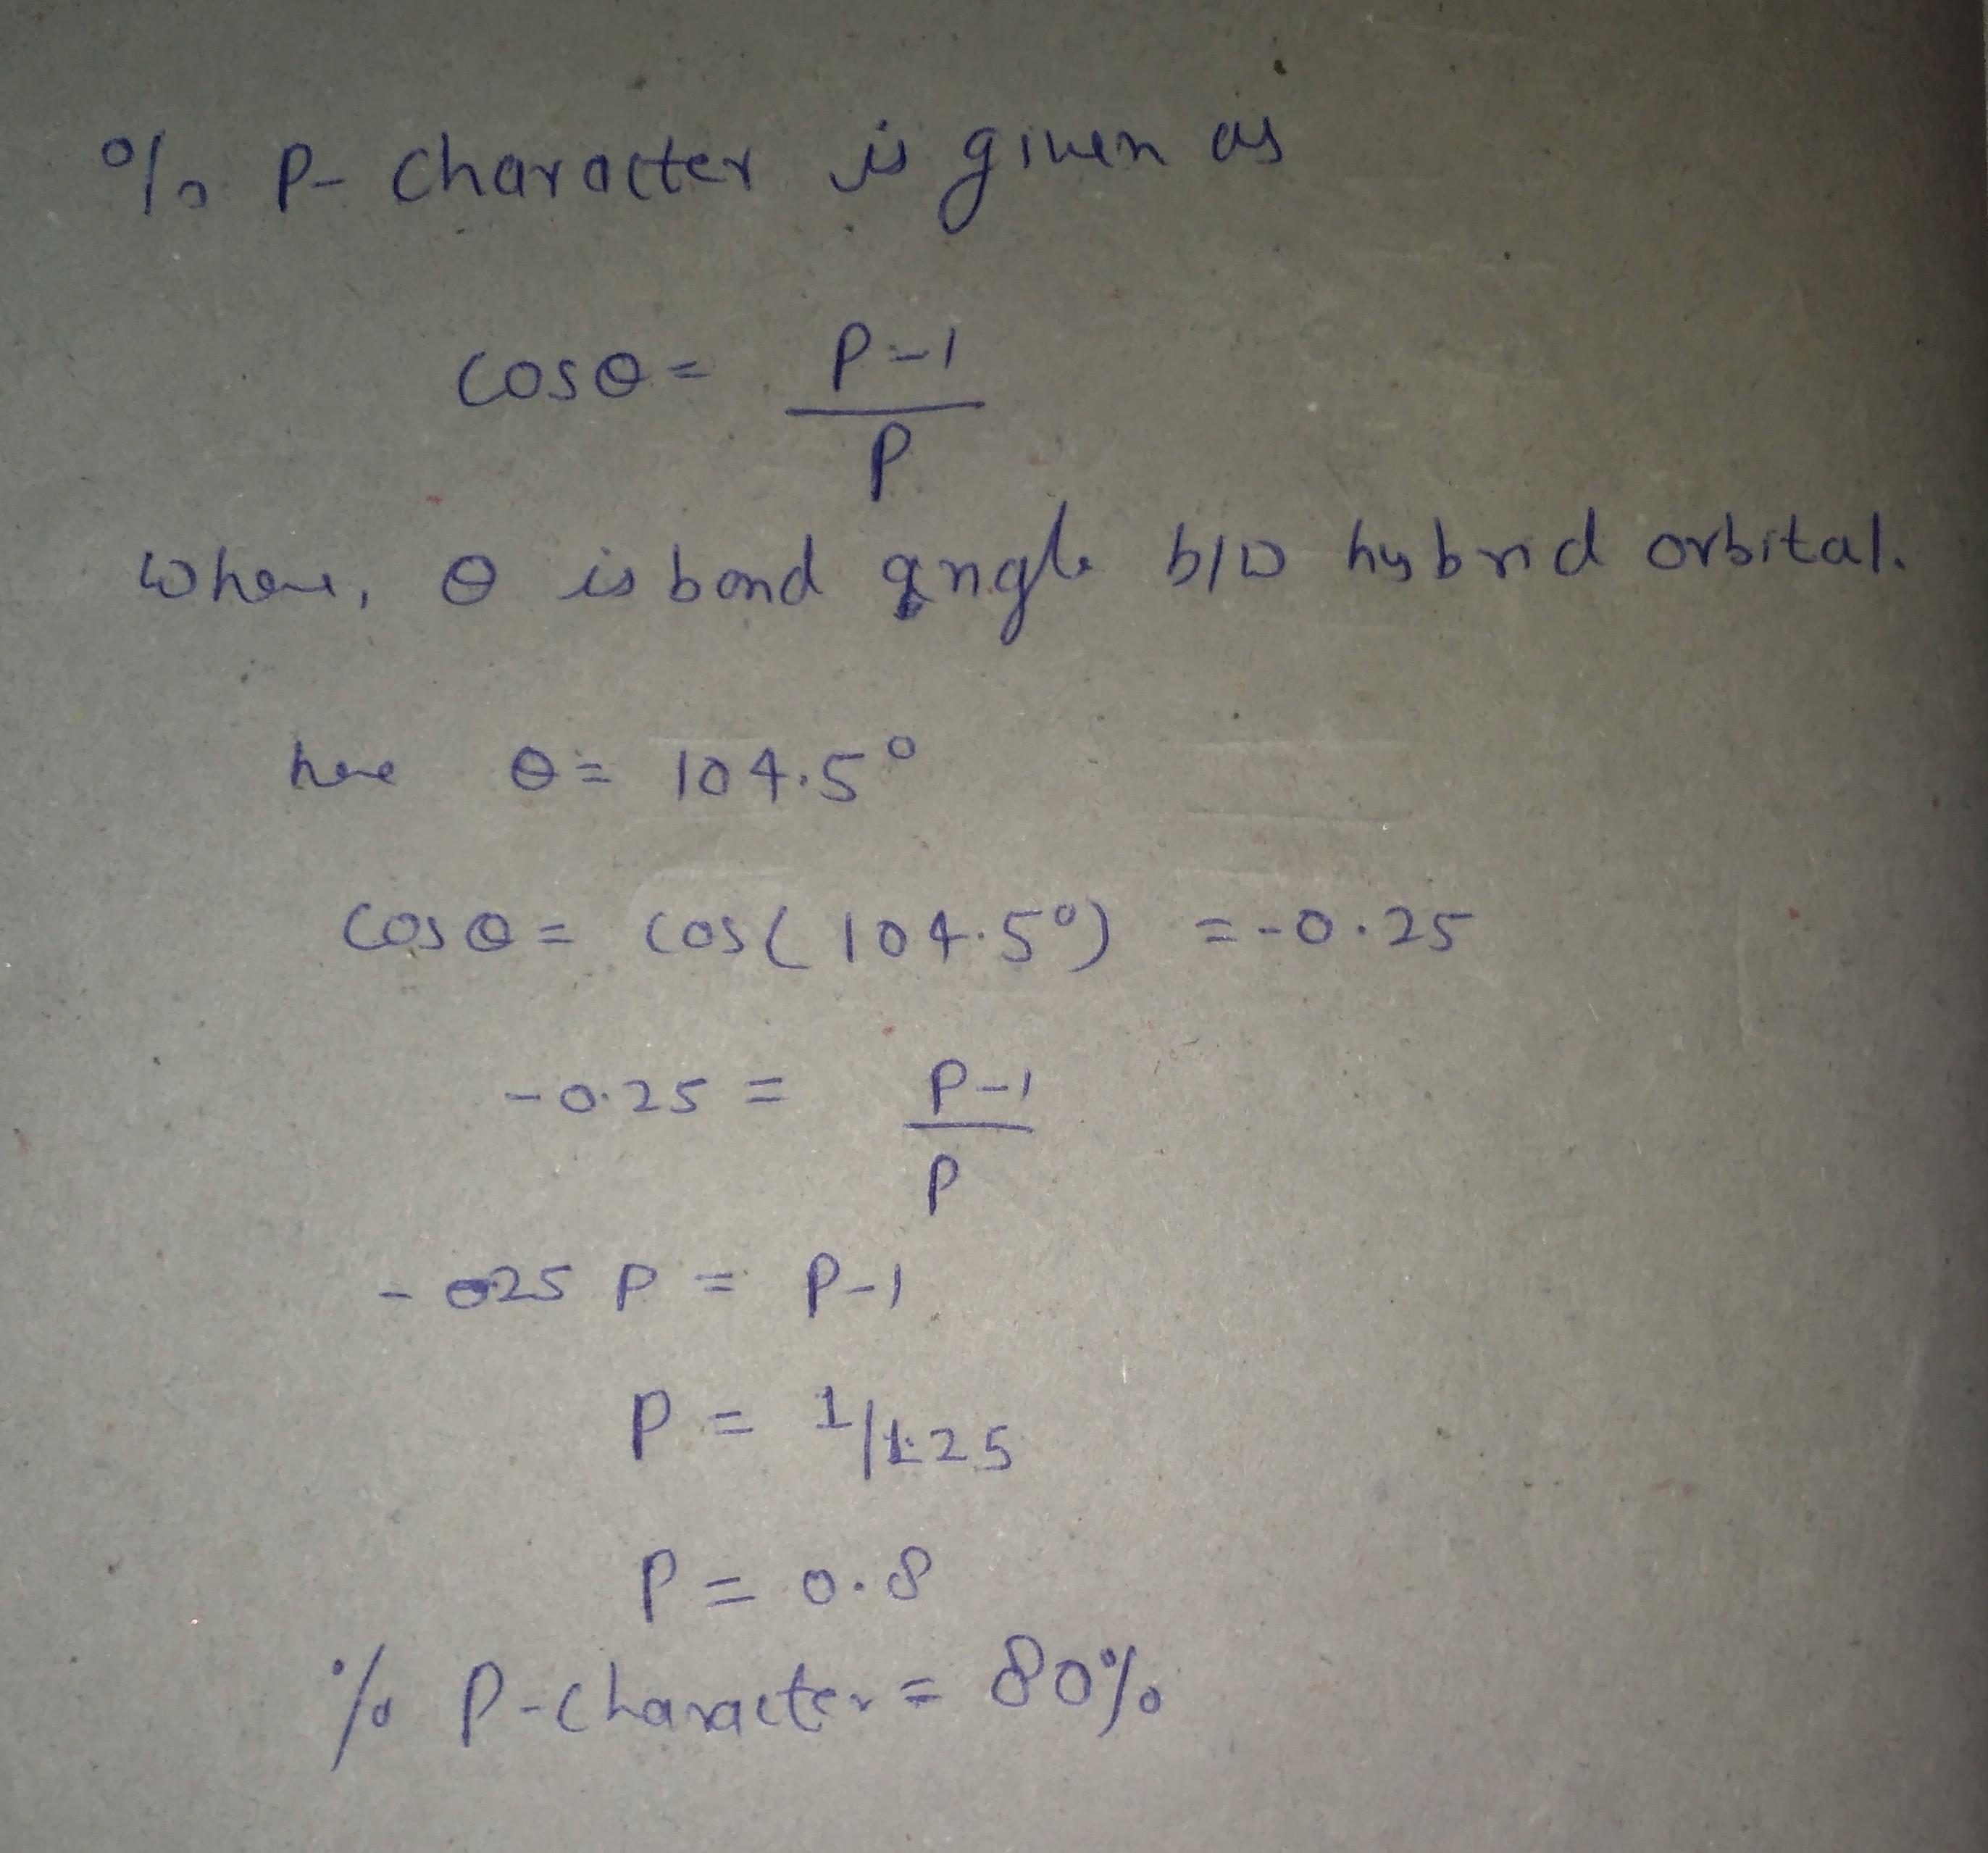 % P- Character is given as
cosθ = P-1
P
Where, θ is bond angle b/w hybrid orbital.
here θ = 104.5°
cosθ = cos(104.5°) = -0.25
-0.25 = P-1
P
-025 P = P-1
P = 1/1.25
P = 0.8
% P-character = 80%